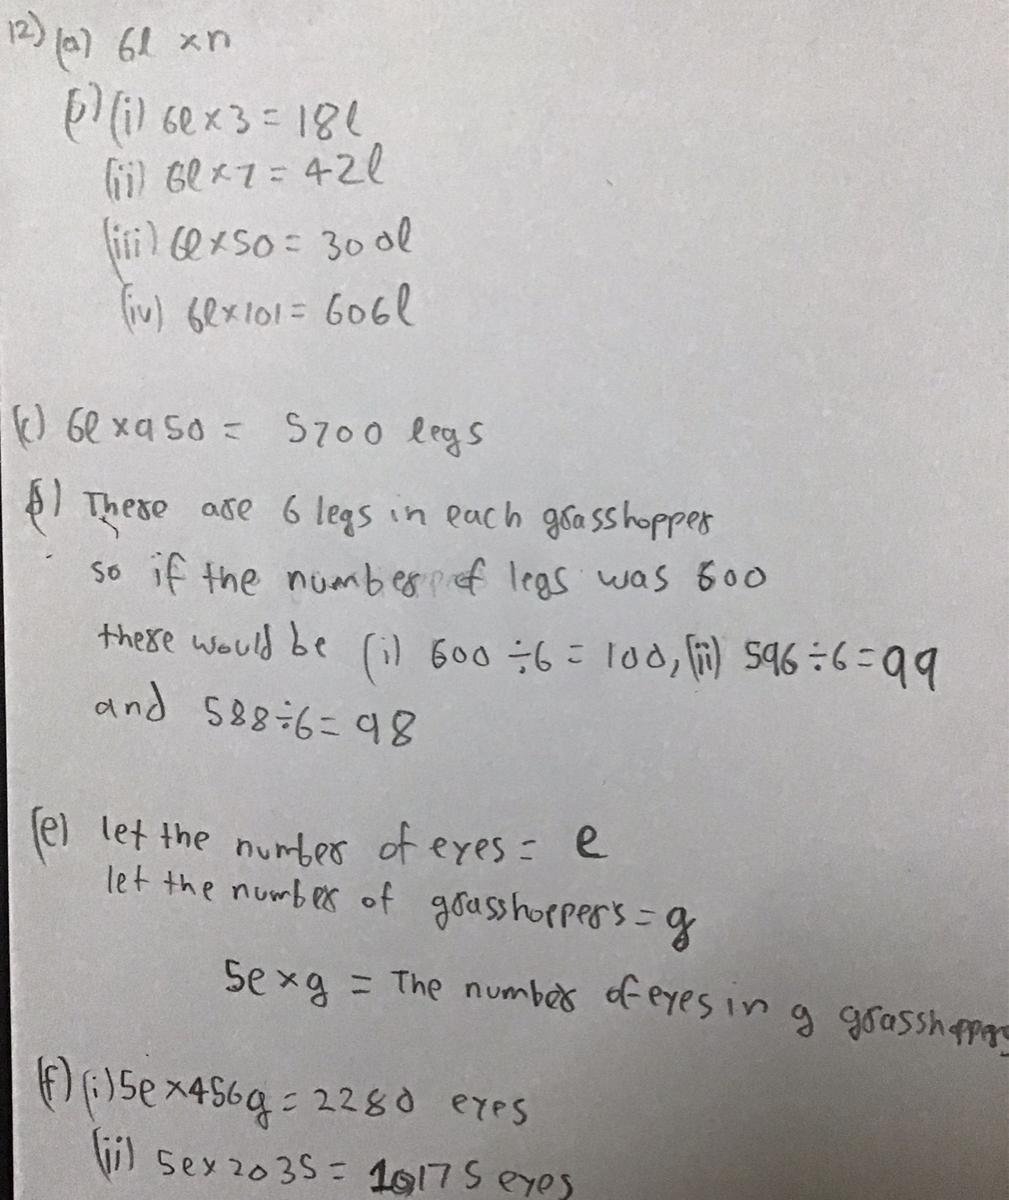 12) (a) 6l × n
(b) (i) 6l × 3 = 18l
(ii) 6l × 7 = 42l
(iii) 6l × 50 = 300l
(iv) 6l × 101 = 606l
(c) 6l × 950 = 5700 legs
d) There are 6 legs in each grasshopper
so if the number of legs was 600
there would be (i) 600 ÷ 6 = 100, (ii) 596 ÷ 6 = 99
and 588 ÷ 6 = 98
(e) let the number of eyes = e
let the number of grasshoppers = g
5e × g = The number of eyes in g grasshoppers
(f) (i) 5e × 456g = 2280 eyes
(ii) 5e × 2035 = 10175 eyes